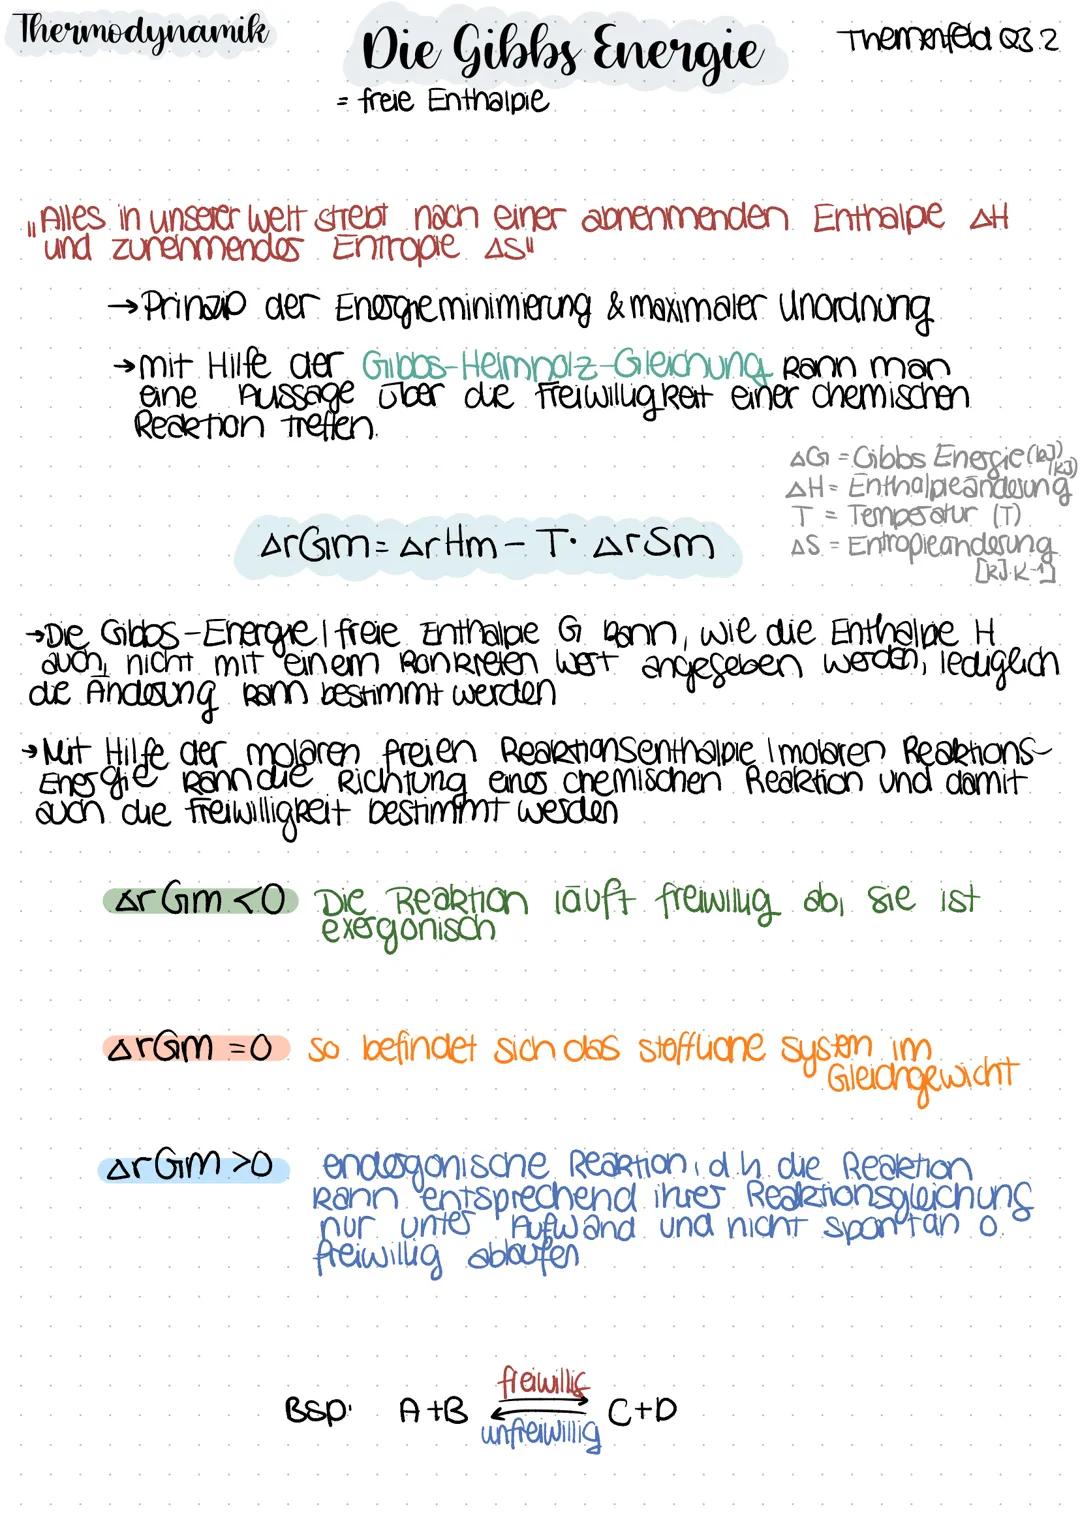 Thermodynamik
Die Gibbs Energie
Themenfeld Q3.2
= freie Enthalpie
"Alles in unserer Welt strebt nach einer abnehmenden Enthalpie ΔH
und zunehmender Entropie ΔS"
→ Prinzip der Energieminimierung & maximaler Unordnung
→ mit Hilfe der Gibbs-Helmholz-Gleichung kann man
eine Aussage über die Freiwilligkeit einer chemischen
Reaktion treffen.
ΔG = Gibbs Energie (kJ)
ΔH = Enthalpieänderung (kJ)
T = Temperatur (T)
ΔS = Entropieänderung
[kJ·K⁻¹]
ΔrGm = ΔrHm - T · ΔrSm
→ Die Gibbs-Energie / freie Enthalpie G kann, wie die Enthalpie H
auch, nicht mit einem konkreten Wert angegeben werden, lediglich
die Änderung kann bestimmt werden
→ Mit Hilfe der molaren freien Reaktionsenthalpie / molaren Reaktions-
Energie kann die Richtung einer chemischen Reaktion und damit
auch die Freiwilligkeit bestimmt werden
ΔrGm < 0 Die Reaktion läuft freiwillig ab, sie ist
exergonisch
ΔrGm = 0 so befindet sich das stoffliche System im
Gleichgewicht
ΔrGm > 0 endergonische Reaktion, d.h. die Reaktion
kann entsprechend ihrer Reaktionsgleichung
nur unter Aufwand und nicht spontan o.
freiwillig ablaufen
freiwillig
Bsp: A+B ⇌ C+D
unfreiwillig